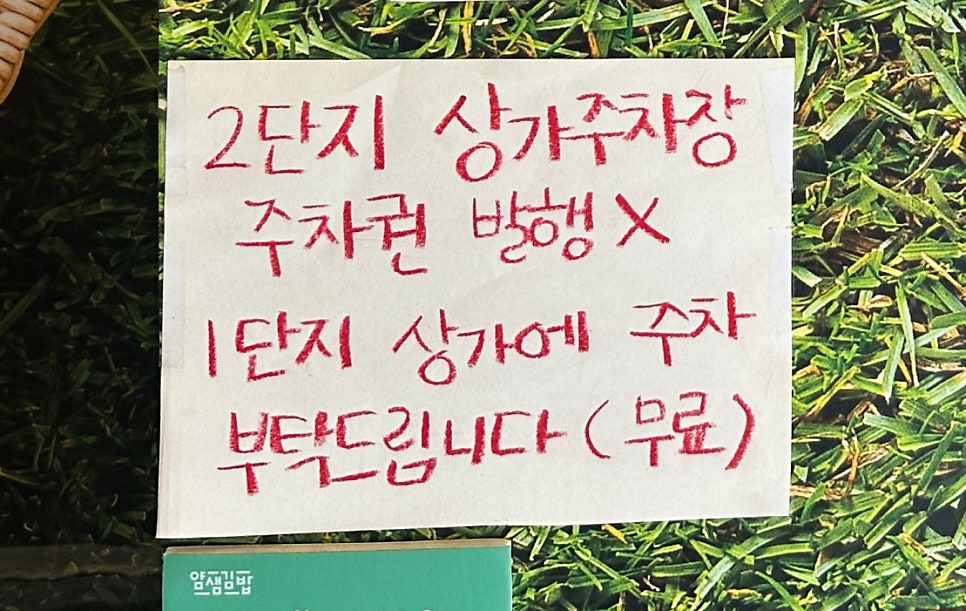 2단지 상가주차장
주차권 발행 X
1단지 상가에 주차
부탁드립니다 (무료)
얌샘김밥